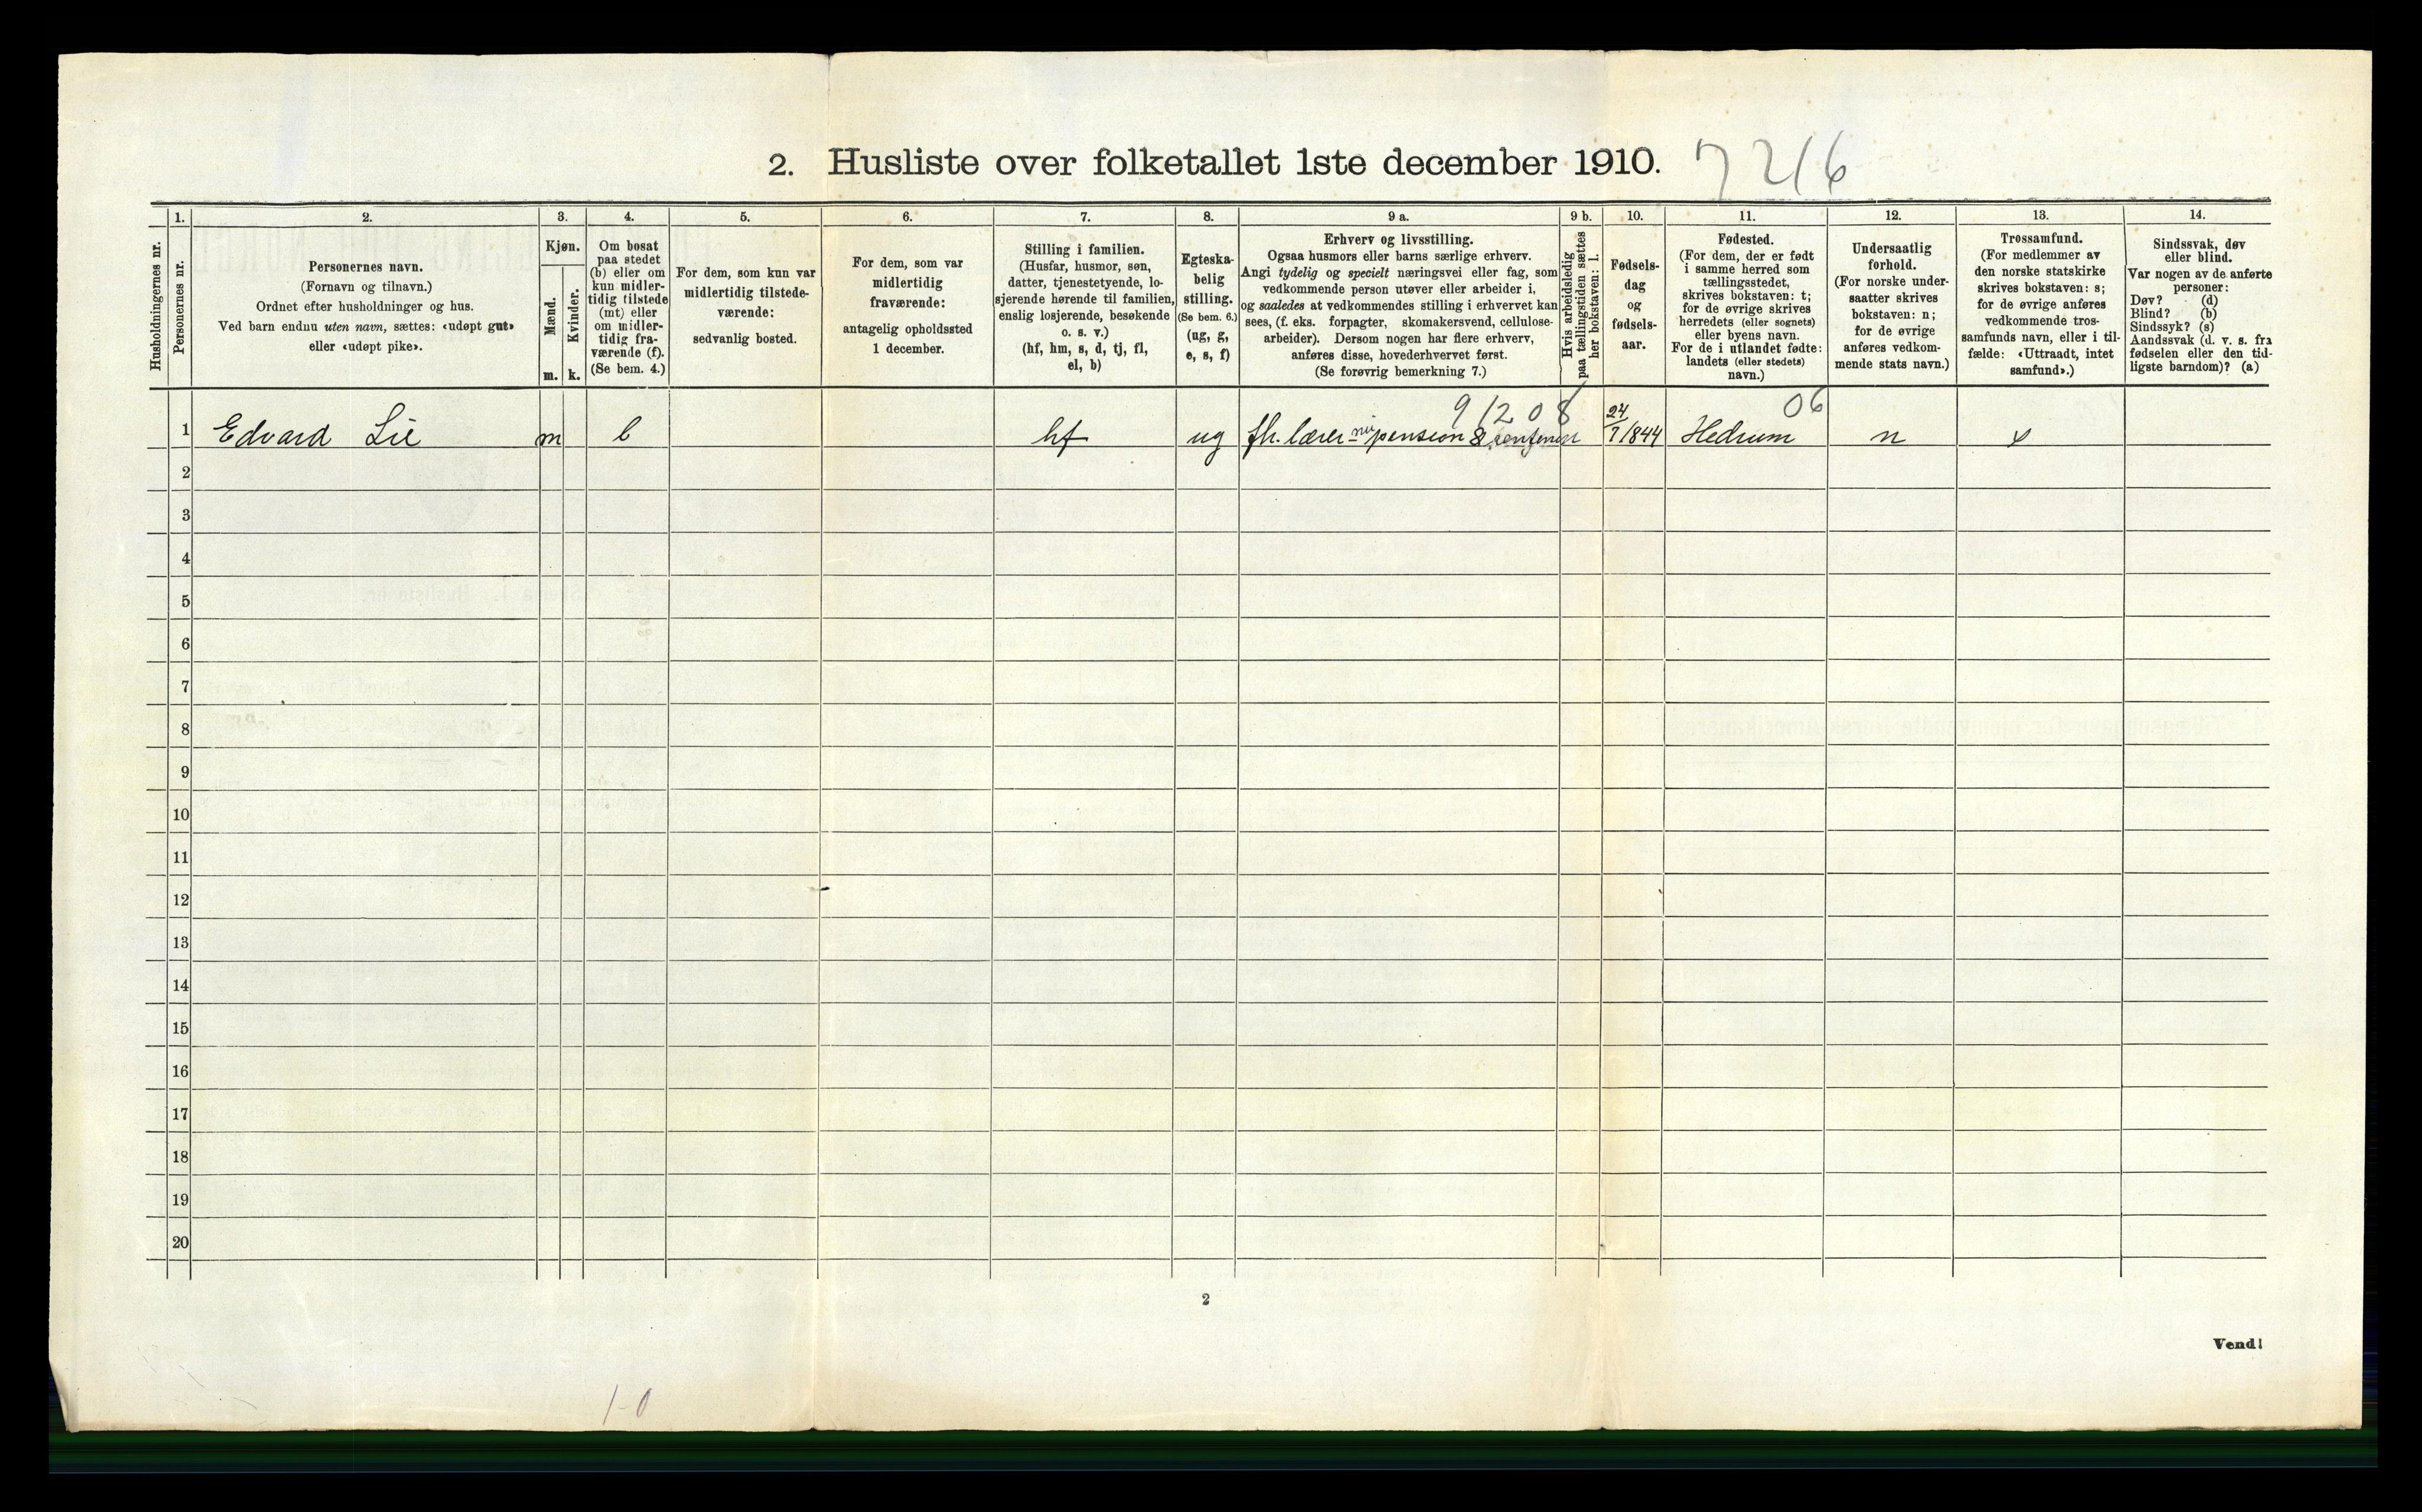 2. Husliste over folketallet 1ste december 1910. 7216
Husholdningernes nr.
1.
Personernes nr.
2.
Personernes navn.
(Fornavn og tilnavn.)
Ordnet efter husholdninger og hus.
Ved barn endnu uten navn, sættes: «udøpt gut»
eller «udøpt pike».
3.
Kjøn.
Mænd.
Kvinder.
m. k.
4.
Om bosat
paa stedet
(b) eller om
kun midler-
tidig tilstede
(mt) eller
om midler-
tidig fra-
værende (f).
(Se bem. 4.)
5.
For dem, som kun var
midlertidig tilstede-
værende:
sedvanlig bosted.
6.
For dem, som var
midlertidig
fraværende:
antagelig opholdssted
1 december.
7.
Stilling i familien.
(Husfar, husmor, søn,
datter, tjenestetyende, lo-
sjerende hørende til familien,
enslig losjerende, besøkende
o. s. v.)
(hf, hm, s, d, tj, fl,
el, b)
8.
Egteska-
belig
stilling.
(Se bem. 6.)
(ug, g,
e, s, f)
9 a.
Erhverv og livsstilling.
Ogsaa husmors eller barns særlige erhverv.
Angi tydelig og specielt næringsvei eller fag, som
vedkommende person utøver eller arbeider i,
og saaledes at vedkommendes stilling i erhvervet kan
sees, (f. eks. forpagter, skomakersvend, cellulose-
arbeider). Dersom nogen har flere erhverv,
anføres disse, hovederhvervet først.
(Se forøvrig bemerkning 7.)
9 b.
Hvis arbeidsledig
paa tællingstiden sættes
her bokstaven: l.
10.
Fødsels-
dag
og
fødsels-
aar.
11.
Fødested.
(For dem, der er født
i samme herred som
tællingsstedet,
skrives bokstaven: t;
for de øvrige skrives
herredets (eller sognets)
eller byens navn.
For de i utlandet fødte:
landets (eller stedets)
navn.)
12.
Undersaatlig
forhold.
(For norske under-
saatter skrives
bokstaven: n;
for de øvrige
anføres vedkom-
mende stats navn.)
13.
Trossamfund.
(For medlemmer av
den norske statskirke
skrives bokstaven: s;
for de øvrige anføres
vedkommende tros-
samfunds navn, eller i til-
fælde: «Uttraadt, intet
samfund».)
14.
Sindssvak, døv
eller blind.
Var nogen av de anførte
personer:
Døv? (d)
Blind? (b)
Sindssyk? (s)
Aandssvak (d. v. s. fra
fødselen eller den tid-
ligste barndom)? (a)
91208 06
1 Edvard Lie m b hf ug fh. lærer pension & 24/7 1844 Hedrum n s
2
3
4
5
6
7
8
9
10
11
12
13
14
15
16
17
18
19
20
2
Vend!
1-0